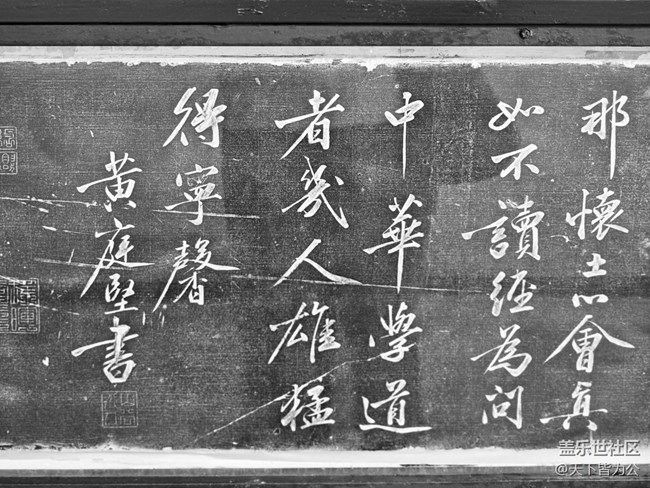 那懷土心會真
如不讀經為問
中華學道
者幾人雄猛
得寧馨
黃庭堅書
盖乐世社区
@天下皆为公